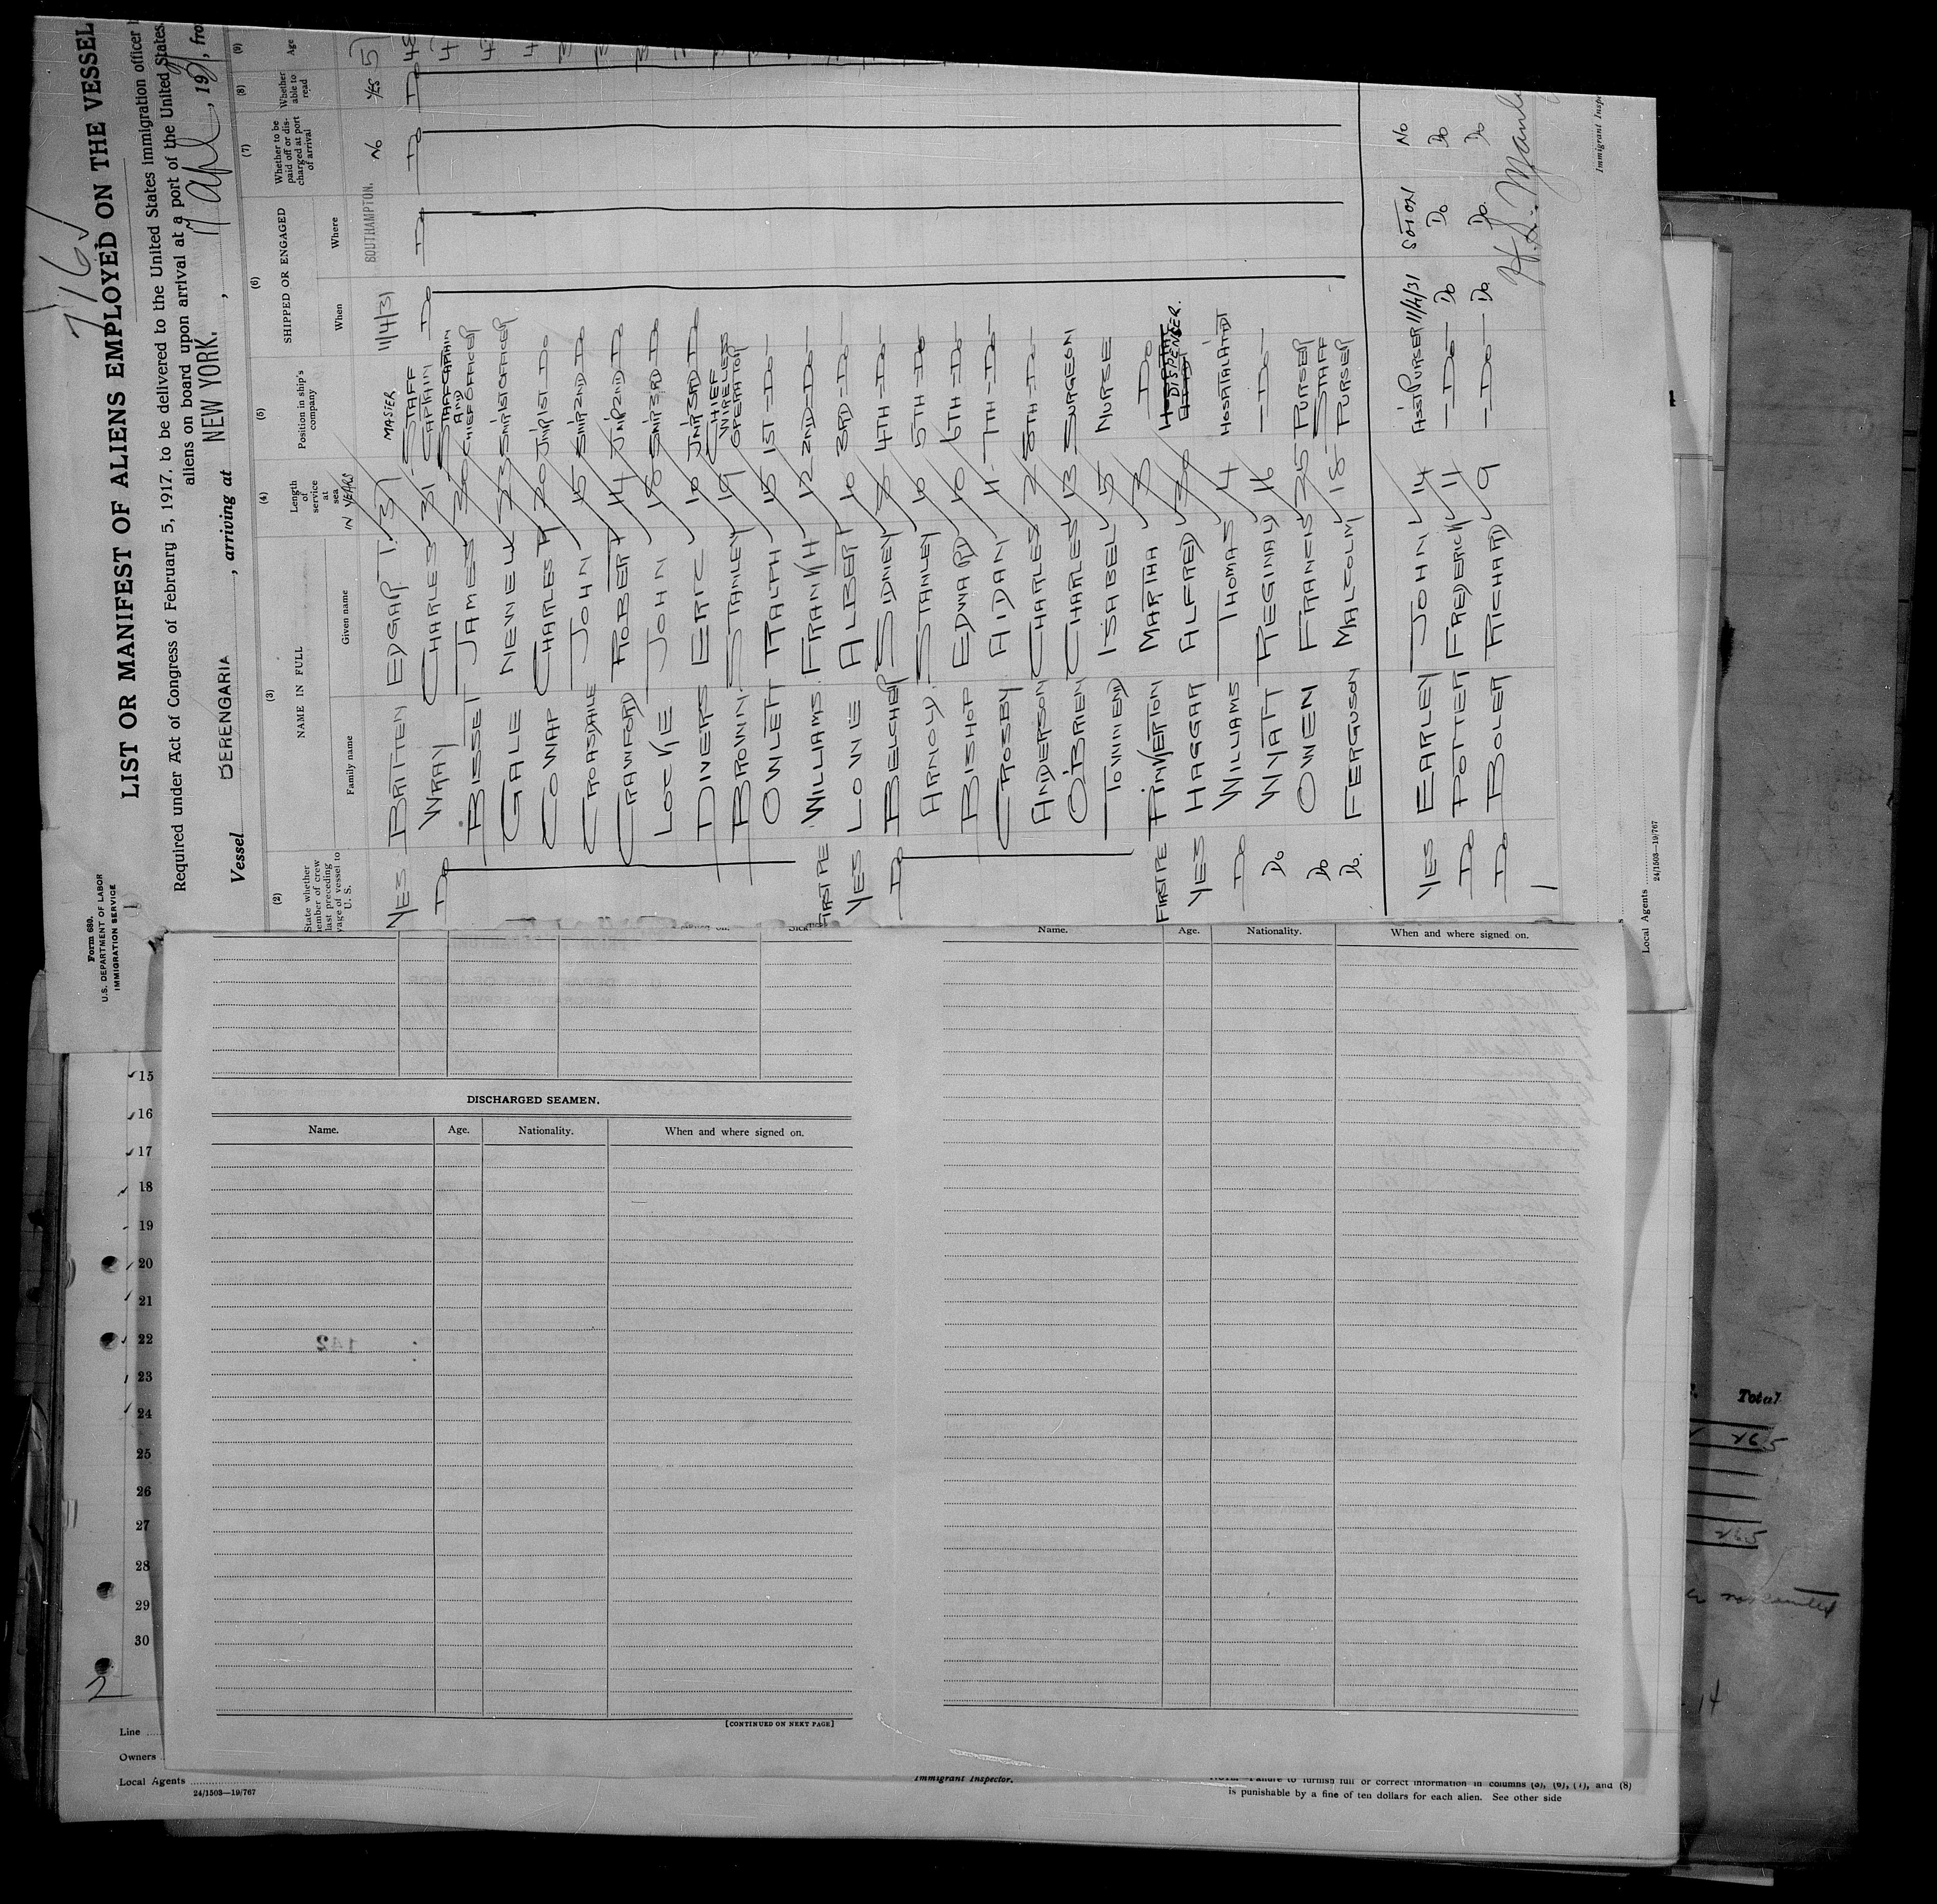 716✓
Form 680.
U.S. DEPARTMENT OF LABOR
IMMIGRATION SERVICE
LIST OR MANIFEST OF ALIENS EMPLOYED ON THE VESSEL
Required under Act of Congress of February 5, 1917, to be delivered to the United States immigration officer
aliens on board upon arrival at a port of the United States
Vessel BERENGARIA, arriving at NEW YORK., 17 Apl, 1931, fro
(2) (3) (4) (5) (6) (7) (8) (9)
State whether member of crew last preceding voyage of vessel to U. S.
NAME IN FULL
Family name Given name
Length of service at sea
IN YEARS
Position in ship's company
SHIPPED OR ENGAGED
When Where
Whether to be paid off or discharged at port of arrival
Whether able to read
Age
YES BRITTEN EDGAR T. 37 MASTER 11/4/31 SOUTHAMPTON. NO YES 57
DO WRAY CHARLES 31 STAFF CAPTAIN DO DO DO DO 48
BISSET JAMES CHIEF OFFICER
GALE NEVNEL 23 SNR 1ST OFFICER
COWAP CHARLES 20 JNR 1ST DO
CROASDAILE JOHN 15 SNR 2ND DO
CRAWFORD ROBERT 14 JNR 2ND DO
LOCKE JOHN SNR 3RD DO
DIVERS ERIC 10 JNR 3RD DO
BROWN. STANLEY 19 CHIEF WIRELESS OPERATOR
OWLETT RALPH 15 1ST — DO —
FIRST PE WILLIAMS. FRANK H 12 2ND — DO —
YES LOWE ALBERT 10 3RD — DO —
DO BELCHER SIDNEY 8 4TH — DO —
ARNOLD. STANLEY 10 5TH — DO
BISHOP EDWARD 10 6TH — DO —
CROSBY AIDAN 11 7TH — DO —
ANDERSON CHARLES 2 8TH — DO —
O'BRIEN CHARLES 13 SURGEON
TOWNEND ISABEL 5 NURSE
FIRST PE PINKERTON MARTHA 3 DO
YES HAGGAR ALFRED DISPENSER.
DO WILLIAMS THOMAS 4 HOSPITAL ATTNDT
DO WYATT REGINALD 16 — DO —
DO OWEN FRANCIS 25 PURSER
DO. FERGUSON MALCOLM 18 STAFF PURSER
YES EARLEY JOHN 14 ASST PURSER 11/4/31 SOTON NO
DO POTTER FREDERICK 11 — DO — DO DO DO
DO BOLER RICHARD 9 — DO — DO DO. DO
Immigrant Inspe
Local Agents
24/1503—19/767
Sick
DISCHARGED SEAMEN.
Name. Age. Nationality. When and where signed on.
142
[CONTINUED ON NEXT PAGE]
Name. Age. Nationality. When and where signed on.
15
16
17
18
19
20
21
22
23
24
25
26
27
28
29
30
2
Line
Owners
Local Agents
24/1503—19/767
Immigrant Inspector.
NOTE.—Failure to furnish full or correct information in columns (3), (6), (7), and (8)
is punishable by a fine of ten dollars for each alien. See other side
Total
265
265
14